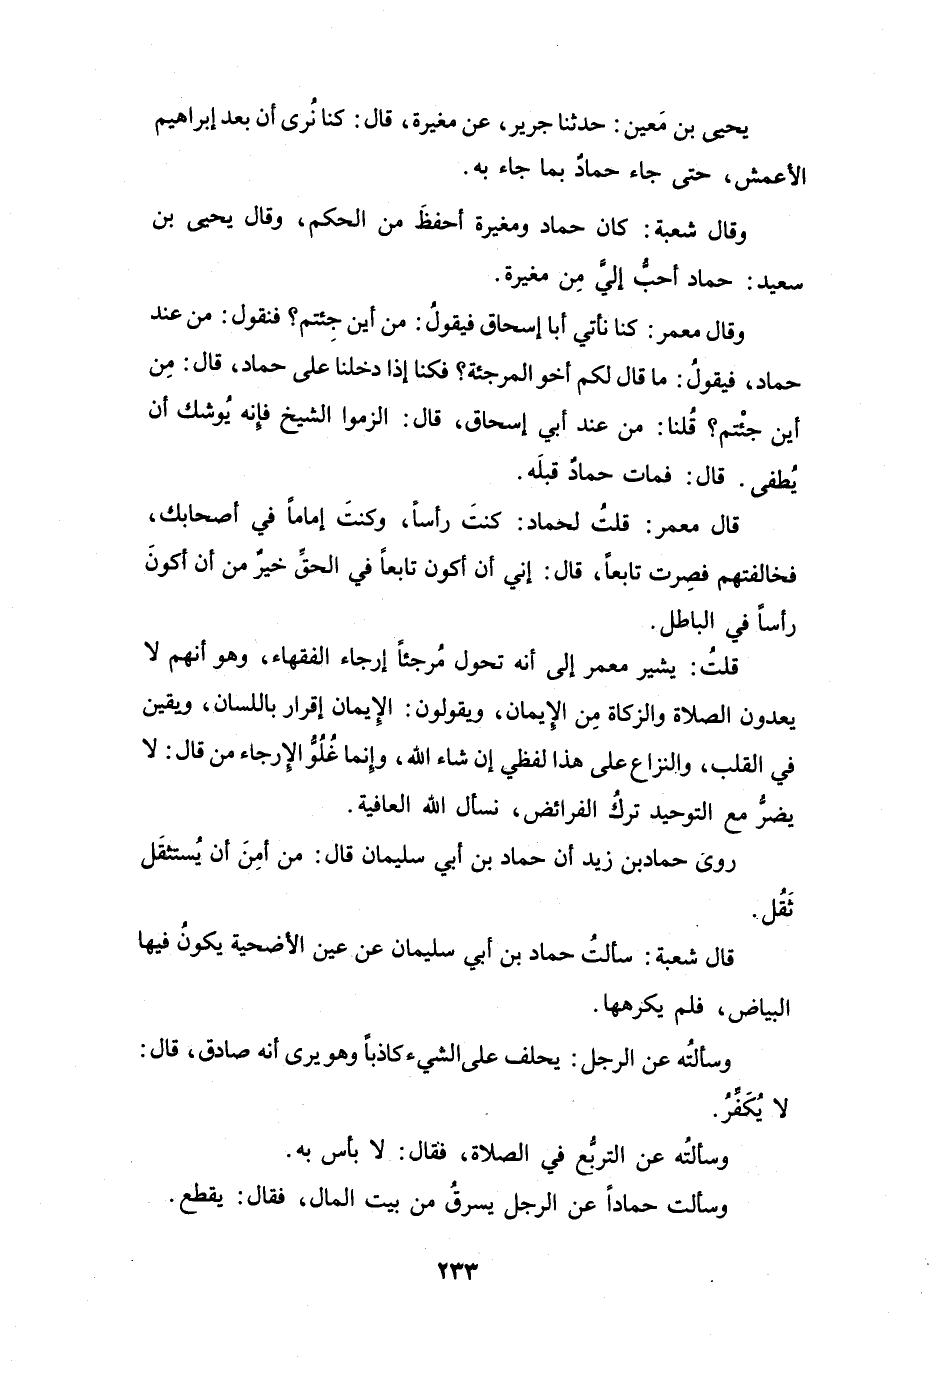 يحيى بن مَعين: حدثنا جرير، عن مغيرة، قال: كنا نُرى أن بعد إبراهيم
الأعمش، حتى جاء حمادٌ بما جاء به.
وقال شعبة: كان حماد ومغيرة أحفظَ من الحكم، وقال يحيى بن
سعيد: حماد أحبُّ إليَّ مِن مغيرة.
وقال معمر: كنا نأتي أبا إسحاق فيقولُ: من أين جِئتم؟ فنقول: من عند
حماد، فيقولُ: ما قال لكم أخو المرجئة؟ فكنا إذا دخلنا على حماد، قال: مِن
أين جئْتم؟ قُلنا: من عند أبي إسحاق، قال: الزموا الشيخ فإنه يُوشك أن
يُطفى. قال: فمات حمادٌ قبلَه.
قال معمر: قلتُ لحماد: كنتَ رأساً، وكنتَ إماماً في أصحابك،
فخالفتهم فصِرت تابعاً، قال: إني أن أكون تابعاً في الحقِّ خيرٌ من أن أكونَ
رأساً في الباطل.
قلتُ: يشير معمر إلى أنه تحول مُرجئاً إرجاء الفقهاء، وهو أنهم لا
يعدون الصلاة والزكاة مِن الإيمان، ويقولون: الإيمان إقرار باللسان، ويقين
في القلب، والنزاع على هذا لفظي إن شاء الله، وإنما غُلُوُّ الإرجاء من قال: لا
يضرُّ مع التوحيد تركُ الفرائض، نسأل الله العافية.
روىَ حمادبن زيد أن حماد بن أبي سليمان قال: من أمِنَ أن يُستثقَل
ثَقُل.
قال شعبة: سألتُ حماد بن أبي سليمان عن عين الأضحية يكونُ فيها
البياض، فلم يكرهها.
وسألتُه عن الرجل: يحلف على الشيء كاذباً وهو يرى أنه صادق، قال:
لا يُكَفِّرُ.
وسألتُه عن التربُّع في الصلاة، فقال: لا بأس به.
وسألت حماداً عن الرجل يسرقُ من بيت المال، فقال: يقطع.
٢٣٣